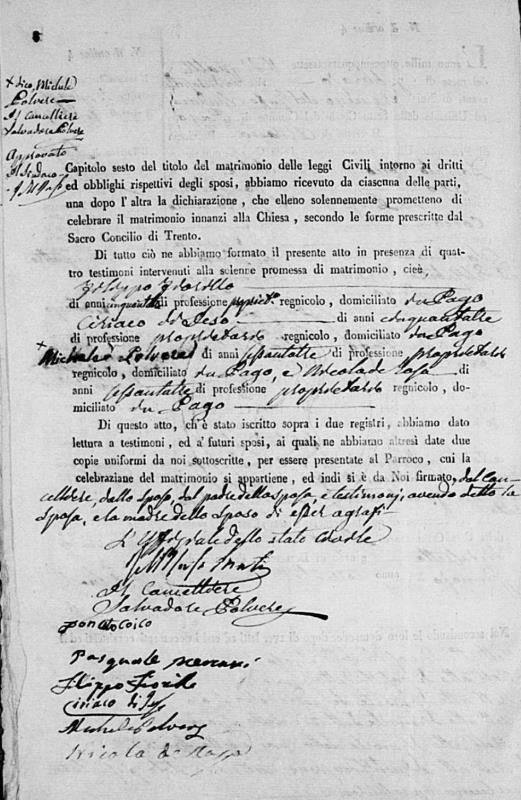 + dico Michele
Polvere
Il Cancelliere
Salvadore Polvere
Approvato
Il Sindaco
Capitolo sesto del titolo del matrimonio delle leggi Civili intorno ai dritti
ed obblighi rispettivi degli sposi, abbiamo ricevuto da ciascuna delle parti,
una dopo l'altra la dichiarazione, che elleno solennemente promettono di
celebrare il matrimonio innanzi alla Chiesa, secondo le forme prescritte dal
Sacro Concilio di Trento.
Di tutto ciò ne abbiamo formato il presente atto in presenza di quat-
tro testimoni intervenuti alla solenne promessa di matrimonio, cioè,
Filippo Fiorillo
di anni cinquanta di professione propriet.o regnicolo, domiciliato in Pago
Ciriaco di Jeso di anni cinquantatre
di professione proprietario regnicolo, domiciliato in Pago
+ Michele Polvere di anni sessantatre di professione proprietario
regnicolo, domiciliato in Pago, e Nicola de Rosa di
anni sessantatre di professione proprietario regnicolo, do-
miciliato in Pago
Di questo atto, ch'è stato iscritto sopra i due registri, abbiamo dato
lettura a testimoni, ed a' futuri sposi, ai quali ne abbiamo altresì date due
copie uniformi da noi sottoscritte, per essere presentate al Parroco, cui la
celebrazione del matrimonio si appartiene, ed indi si è da Noi firmato, dal Can-
celliere, dallo sposo, dal padre della sposa, e testimonj, avendo detto la
sposa, e la madre dello sposo di esser agrafi
L'Uffiziale dello stato civile
Il Cancelliere
Salvadore Polvere
Donato Coico
Pasquale
Filippo Fiorillo
Ciriaco di Jeso
Michele Polvere
Nicola de Rosa